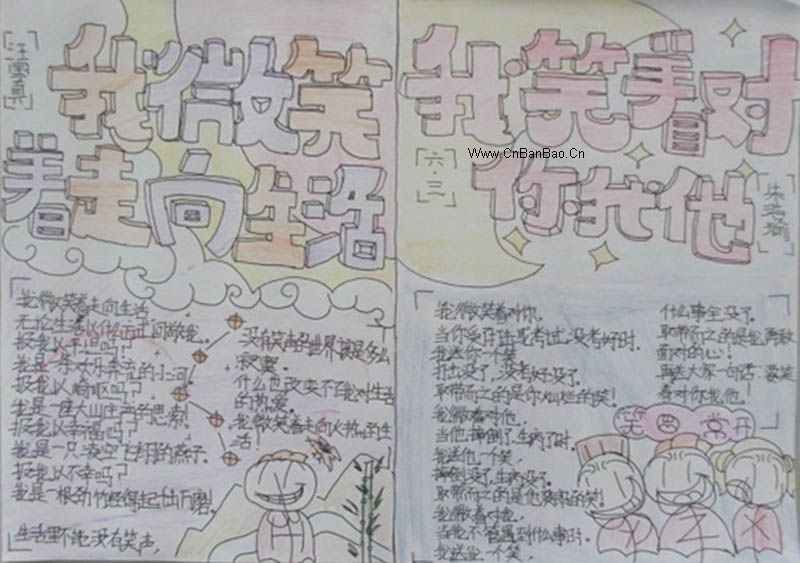 我微笑
着走向生活
我微笑着走向生活
无论生活以什么方式回敬我。
报我以平坦吗？
我是一条欢乐奔流的小河。
报我以崎岖吗？
我是一座大山庄严的思索！
报我以幸福吗？
我是一只凌空飞翔的燕子。
报我以不幸吗？
我是一根劲竹经得起千击万磨！
生活里不能没有笑声，
没有笑声的世界该是多么
寂寞。
什么也改变不了我对生活
的热爱。
我微笑着走向火热的生
活！
我笑着对
你我他
Www.CnBanBao.Cn
六·三
我微笑着对你，
当你受打击或考试没考好时。
我送你一个笑，
打击没了，没考好没了。
取带而之的是你灿烂的笑！
我微着对他，
当他摔倒了生病了时。
我送他一个笑，
摔倒没了，生病没了。
取带而之的是他爽朗的笑！
我微着对她，
当她不管遇到什么事时。
我送她一个笑，
什么事全没了。
取带而之的是她勇敢
面对的心！
再送大家一句话：要笑
着对你我他！
笑口常开